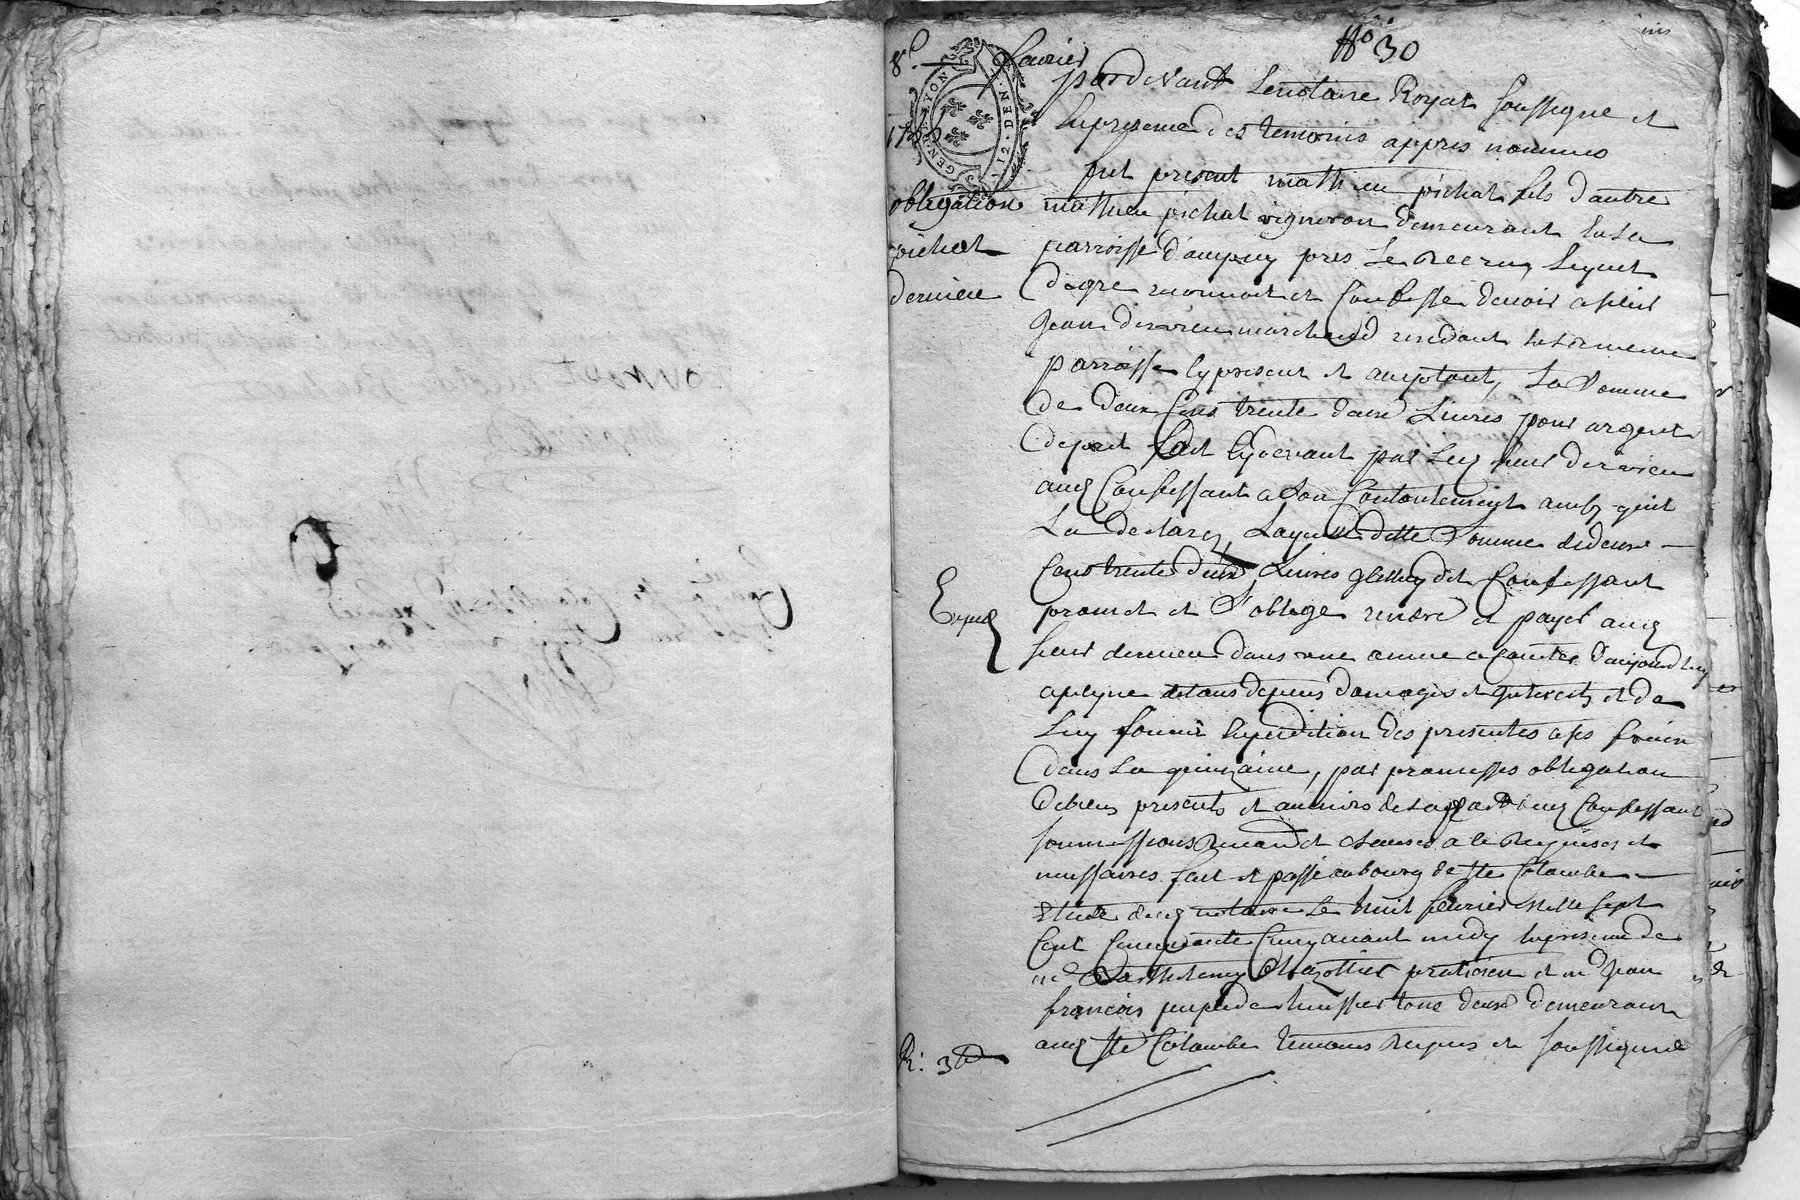 No 30
8e février
1755
GEN. D. LYON
DEN. TI.
obligation
pichat
dervieu
pardevant Lenotaire Royal soussigné et
en presence des temoins appres nommes
fut présent mathieu pichat fils d'autre
mathieu pichat vigneron demeurant en la
parroisse d'ampuy pres Le Recru, Lequel
de gre reconnoit et Confesse devoir a sieur
Jean dervieu marchand residant en la meme
parroisse icy présent et acceptant, La somme
de deux Cens trente deux Livres pour argent
de pret fait cydevant par Led sieur dervieu
aud Confessant a son Contentement ainsy quil
La declaré, Laquelle ditte somme dedeux
Cens trente deux Livres Icelluy dit Confessant
promet et s'oblige rendre et payer aud
Exped
sieur dervieu dans une année a Compter d'aujourdhuy
apeyne detous depens damages et interests et de
Luy fournir expedition des presentes a ses fraix
dans La quinzaine, par promesses obligation
debiens presents et avenirs de sa part dud Confessant
soumissions Renond et clauses a ce Requises et
nessaires fait et passé au bourg de Ste Colombe
Etude dud notaire Le huit février Mille sept
Cent Cinquante Cinq avant midy en presence de
me Barthelemy Chazottier praticien et me Jean
francois huissier tous deux demeurant
aud Ste Colombe temoins Requis et soussignés
R: 3